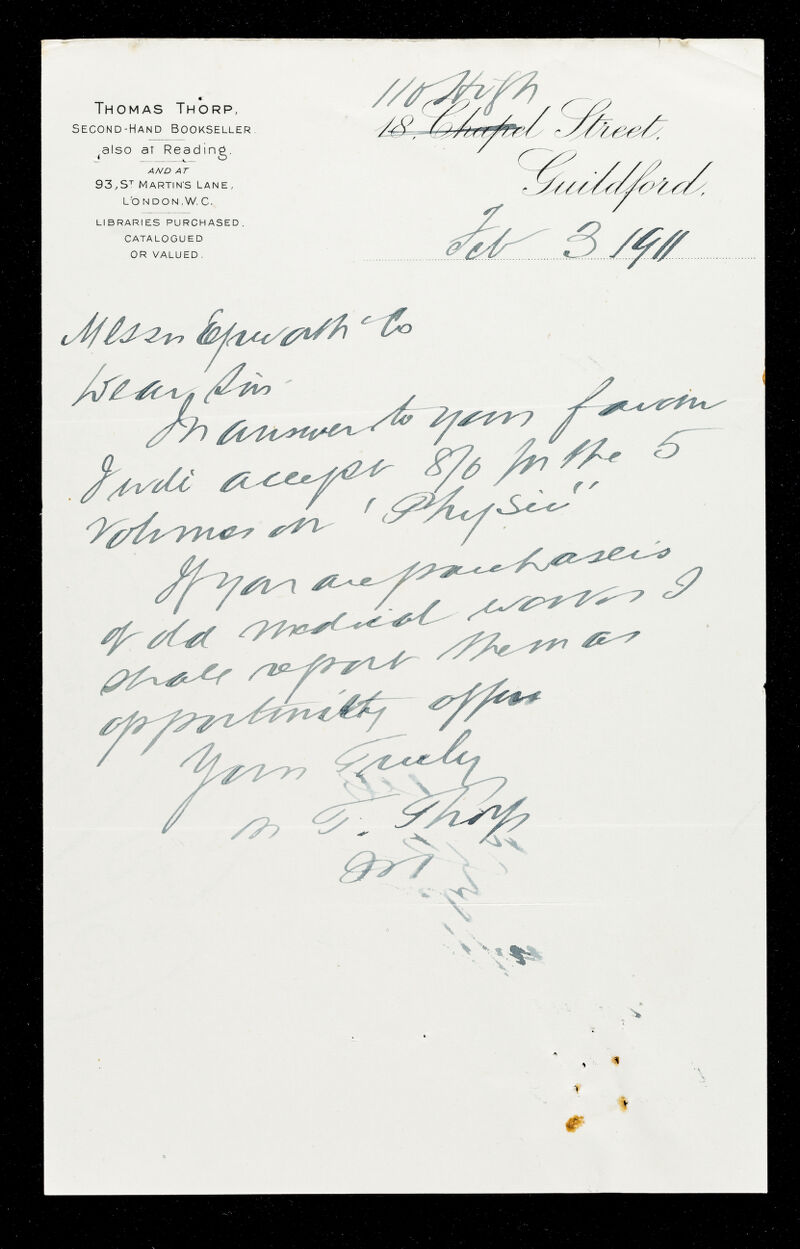 THOMAS THORP,
SECOND-HAND BOOKSELLER.
also at Reading.
AND AT
93, ST MARTIN'S LANE,
LONDON. W.C.
LIBRARIES PURCHASED.
CATALOGUED
OR VALUED.
110 High
18. Chapel Street.
Guildford.
Feb 3 1911
Messrs Epworth & Co
Dear Sirs
In answer to your favour
I will accept 8/6 for the 5
volumes on "Physic"
If you are purchasers
of old medical works I
shall report them as
opportunity offers
Yours Truly
T. Thorp